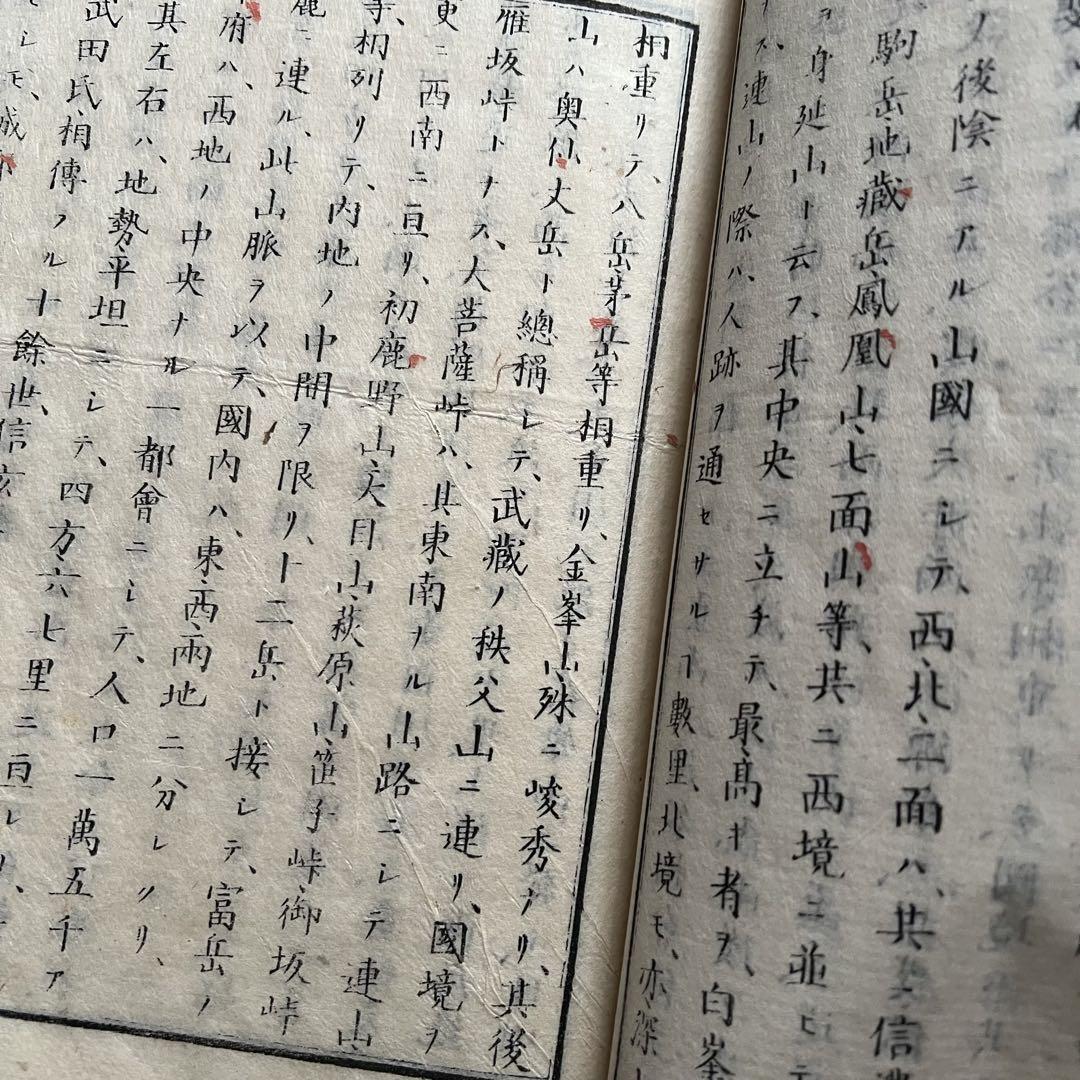 ノ後陰ニアル山國ニシテ、西北二面ハ、共ニ信
駒岳、地藏岳、鳳凰山、七面山等、共ニ西境ニ並ヒテ
身延山ト云フ、其中央ニ立チテ、最高キ者ヲ、白峯
連山ノ際ハ、人跡ヲ通セサルヿ數里、北境モ、亦深
相重リテ、八岳、茅岳等相重リ、金峯山、殊ニ峻秀ナリ、其後
山ハ奥仙丈岳ト總稱シテ、武藏ノ秩父山ニ連リ、國境ヲ
雁坂峠トナス、大菩薩峠ハ、其東南ヲル山路ニシテ連山
更ニ西南ニ亘リ、初鹿野山、天目山、萩原山、笹子峠、御坂峠
等、相列リテ、内地ノ中間ヲ限リ、十二岳ト接シテ、富岳ノ
麓ニ連ル、此山脈ヲ以テ、國内ハ、東西兩地ニ分レタリ、
府ハ、西地ノ中央ナル一都會ニシテ、人口一萬五千ア
其左右ハ、地勢平坦ニシテ、四方六七里ニ亘レリ、
武田氏、相傳フル十餘世、信玄